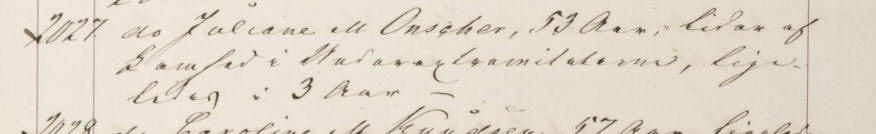 2027 do Juliane M Onscher, 53 Aar, lider af
Lamhed i Underextremiteterne, lige-
ledes i 3 Aar –
2028 do Caroline M Knudsen, 57 Aar, ligeled